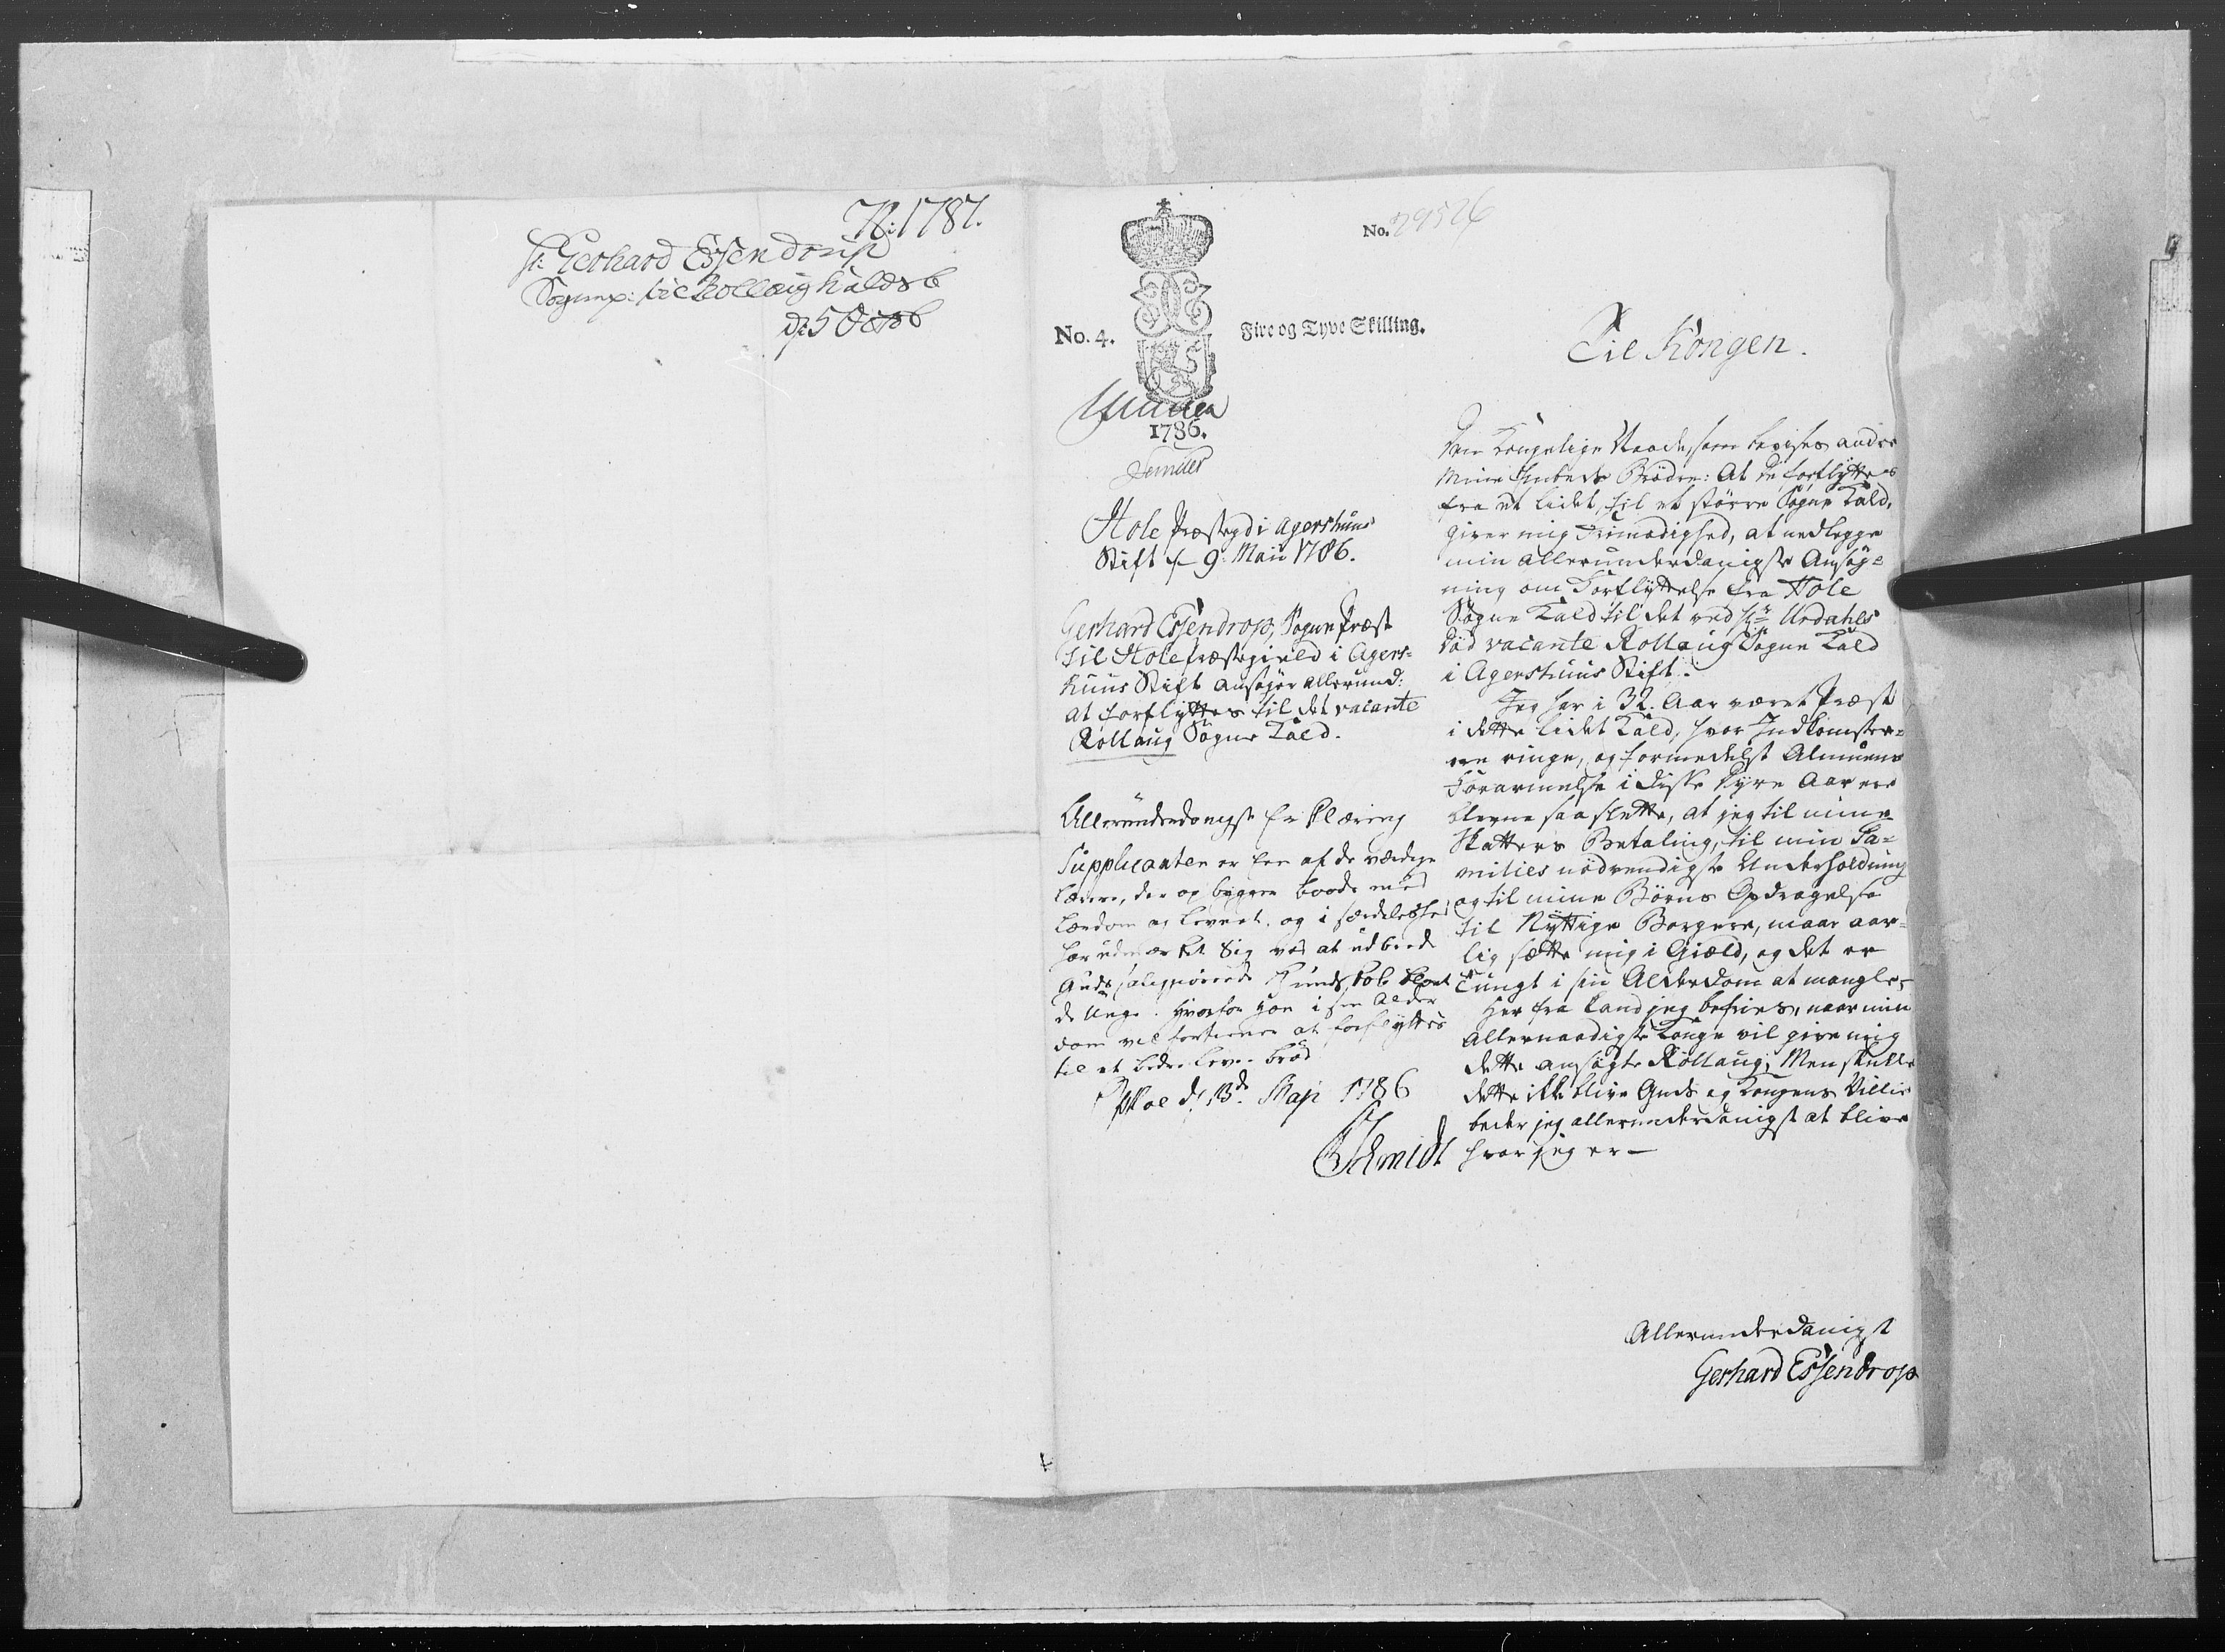 N: 1787.
H: Gerhard Essendrop
Sognep: til Rollaug Kalds b
d: 5 Octob
No. 29526
No. 4.
Fire og Tyve Skilling.
1786.
Hole Præstegd i Agershuus
Stift d 9. Maii 1786.
Gerhard Essendrop, Sogne Præst
til Hole Præstegield i Agers-
huus Stift ansøger allerund:
at forflyttes til det vacante
Rollaug Sogne Kald.
Allerunderdanigst Erklæring
Supplicanten er een af de værdige
Lærere, der opbygger baade med
Lærdom og Levnet, og i særdeleshed
har udmærket Sig ved at udbrede
Guds saliggiørende Kundskab blant
de Unge. Hvorfor han i sin Alder
dom vel fortiener at forflyttes
til et bedre Leve brød
d. 13de Maji 1786
Schmidt
Til Kongen.
Den Kongelige Naade, som bevises andre
mine Embeds Brødre: At de forflyttes
fra et lidet, til et større Sogne Kald,
giver mig Frimodighed, at nedlegge
min allerunderdanigste Ansøg-
ning om Forflyttelse fra Hole
Sogne Kald til det ved Hr Urdahls
Død vacante Rollaug Sogne Kald
i Agershuus Stift.
Jeg har i 32. Aar været Præst
i dette lidet Kald, hvor Indkomster-
ne ringe, og formedelst Almuens
Forarmelse i disse dyre Aar ere
blevne saa slette, at jeg til mine
Skatters Betaling, til min Fa-
milies nødvendigste Underholdning
og til mine Børns Opdragelse
til Nyttige Borgere, maae aar-
lig sætte mig i Giæld, og det er
tungt i sin Alderdom at mangle,
Her fra kand jeg befries, naar min
Allernaadigste Konge vil give mig
dette ansøgte Rollaug; Men skulle
dette ikke blive Guds og Kongens Villie
beder jeg allerunderdanigst at blive
hvor jeg er —
Allerunderdanigst
Gerhard Essendrop